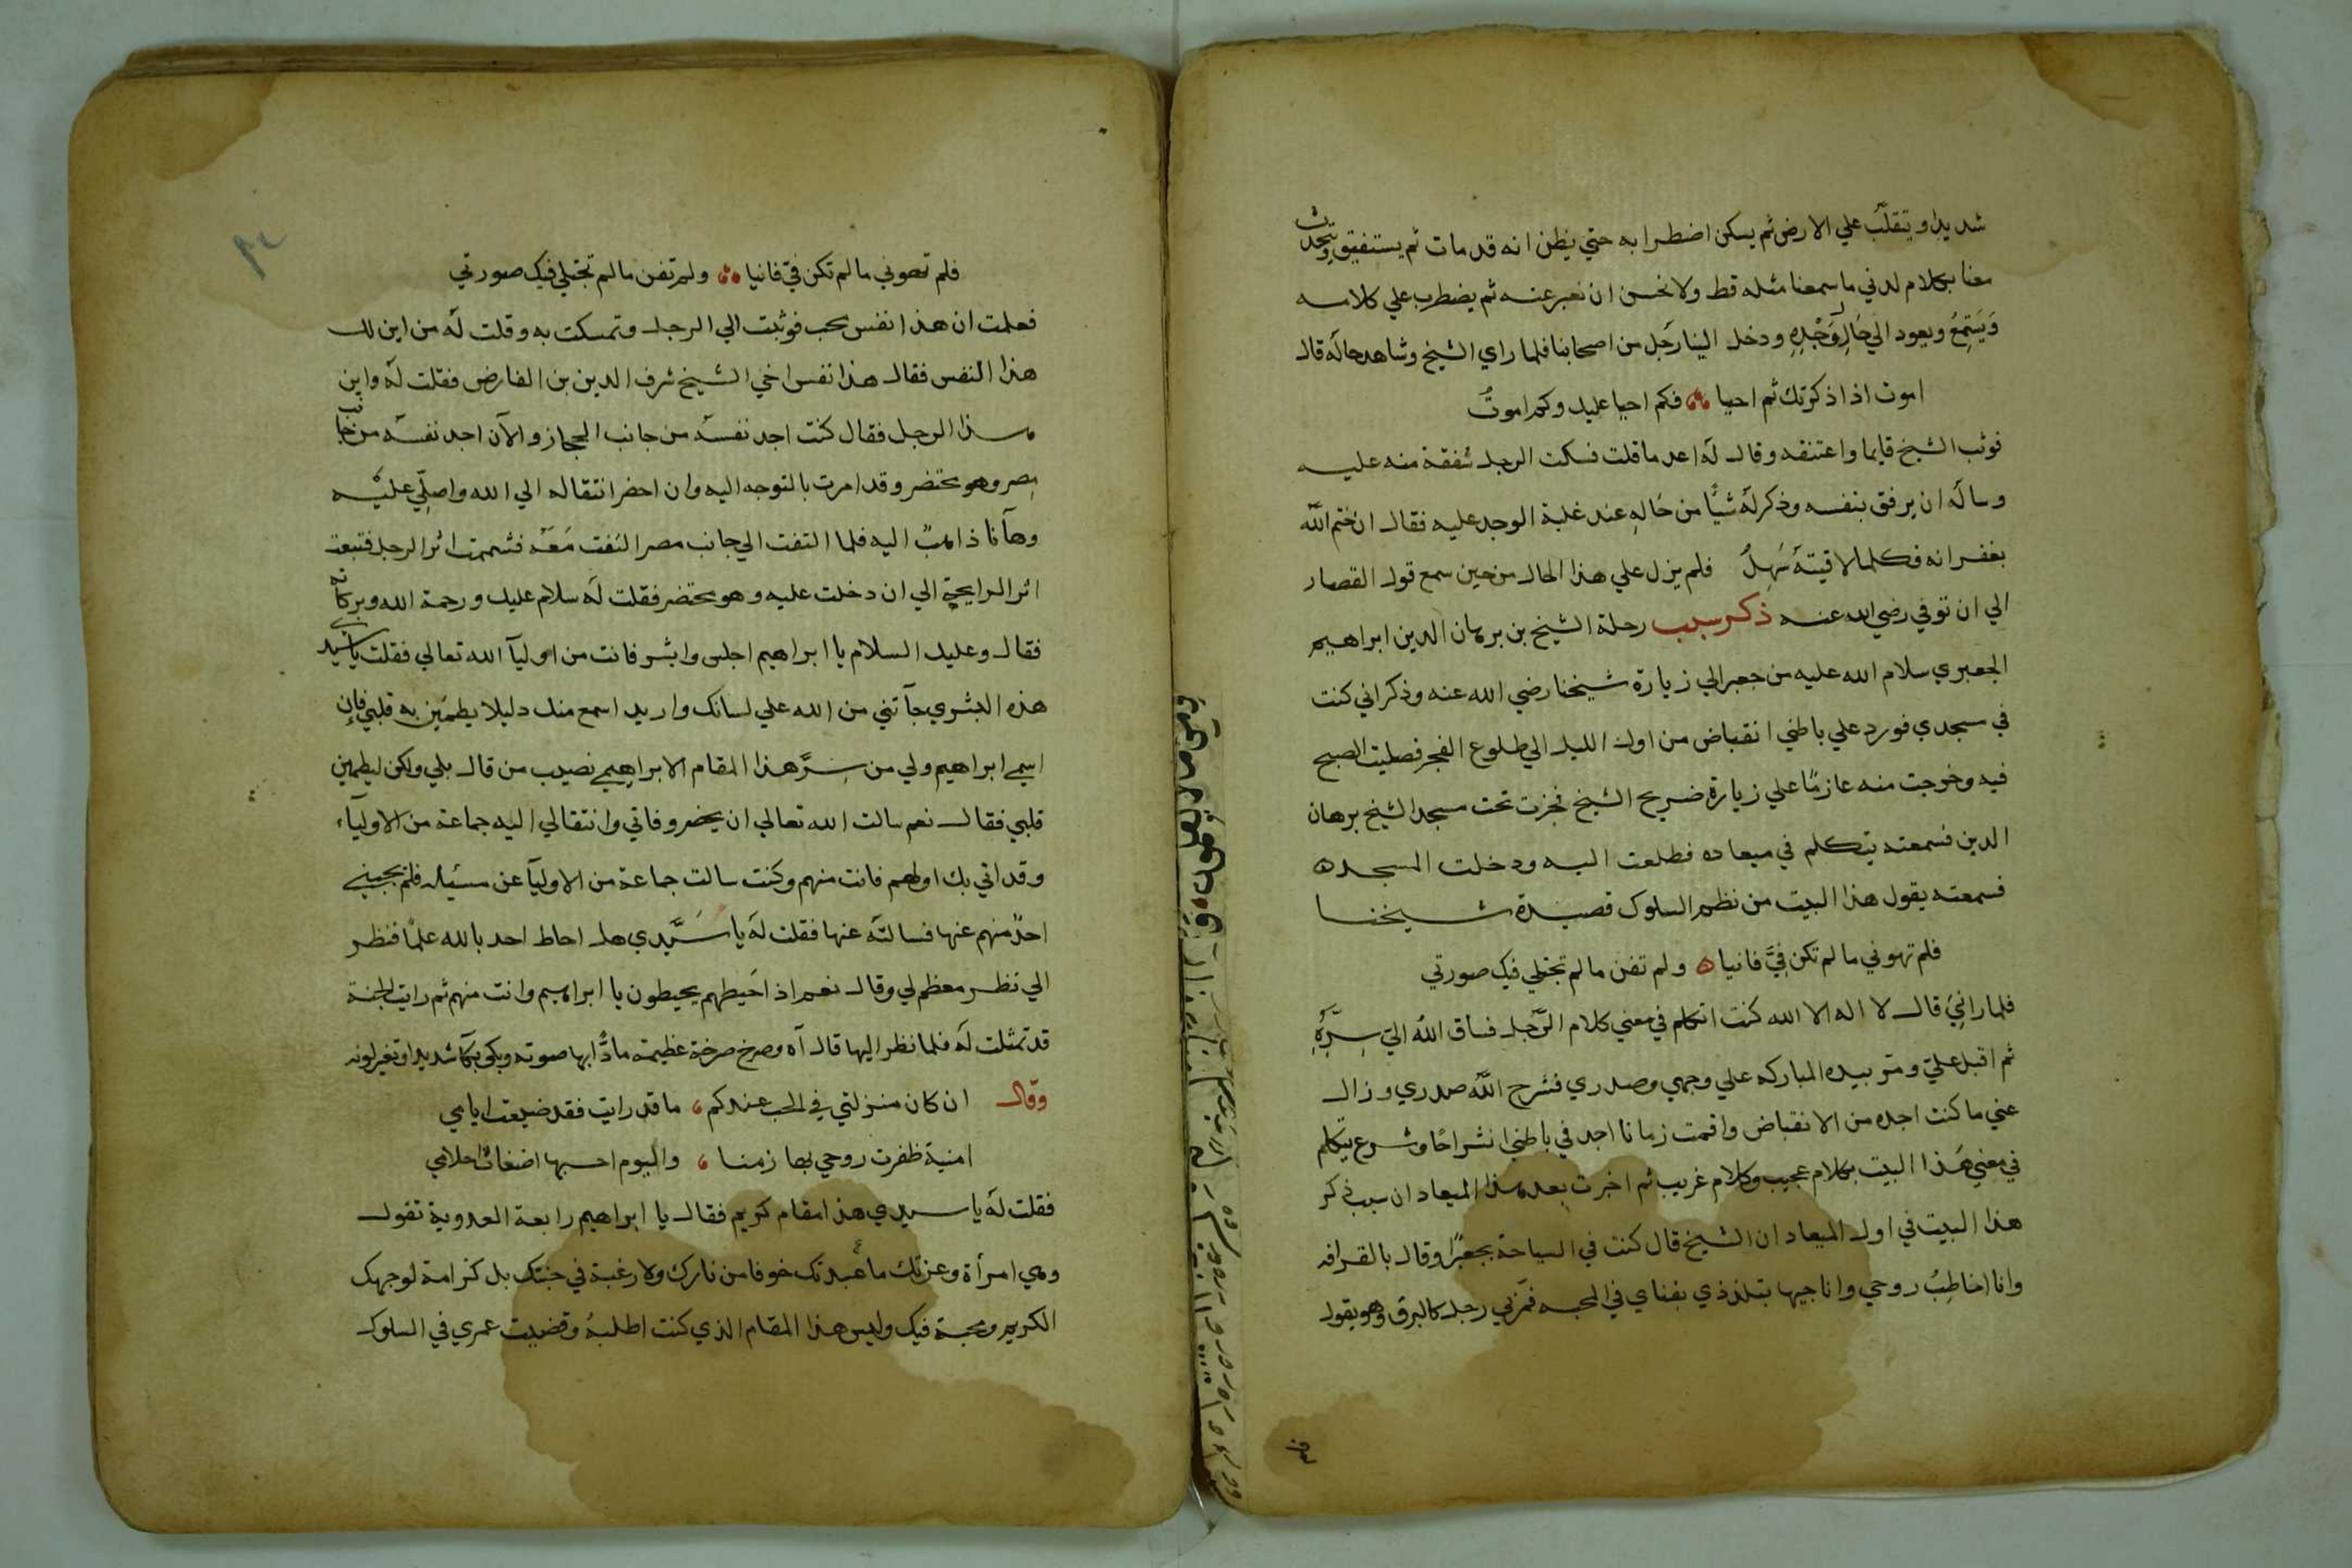 شديدا ويتقلب علي الارض ثم يسكن اضطرابه حتي يظن انه قد مات ثم يستفيق ويتحدث
معنا بكلام لدني ما سمعنا مثله قط ولا نحسن ان نعبر عنه ثم يضطرب علي كلامه
ويستمع ويعود الي حال وجده ودخل الينا رجل من اصحابنا فلما راي الشيخ وشاهد حاله قال
اموت اذا ذكرتك ثم احيا فكم احيا عليك وكم اموت
فوثب الشيخ قايما واعتنقه وقال له اعد ما قلت فسكت الرجل شفقة منه عليه
وساله ان يرفق بنفسه وذكر له شيأ من حاله عند غلبة الوجد عليه فقال ان ختم الله
بغفرانه فكلما لاقيته سهل فلم يزل علي هذا الحال من حين سمع قول القصار
الي ان توفي رضي الله عنه ذكر سبب رحلة الشيخ بن برهان الدين ابراهيم
الجعبري سلام الله عليه من جعبر الي زيارة شيخنا رضي الله عنه وذكر اني كنت
في مسجدي فورد علي باطني انقباض من اول الليل الي طلوع الفجر فصليت الصبح
فيه وخرجت منه عازما علي زيارة ضريح الشيخ فجزت تحت مسجد الشيخ برهان
الدين فسمعته يتكلم في ميعاده فطلعت اليه ودخلت المسجد ه
فسمعته يقول هذا البيت من نظم السلوك قصيدة شيخنا
فلم تهوني ما لم تكن في فانيا ه ولم تفن ما لم تجتلي فيك صورتي
فلما راني قال لا اله الا الله كنت اتكلم في معني كلام الرجل فساق الله الي سره
ثم اقبل علي ومر بيده المباركه علي وجهي وصدري فشرح الله صدري وزال
عني ما كنت اجده من الانقباض واقمت زمانا اجد في باطني انشراحا وشرع يتكلم
في معني هذا البيت بكلام عجيب وكلام غريب ثم اخبرت بعد هذا الميعاد ان سبب ذكر
هذا البيت في اول الميعاد ان الشيخ قال كنت في السياحة بجعبر او قال بالقرافه
وانا اخاطب روحي واناجيها بتلذذي بفناي في المحبه فمر بي رجل كالبرق وهو يقول
فلم تهوني ما لم تكن في فانيا ولم تفن ما لم تجتلي فيك صورتي
فعلمت ان هذا نفس محب فوثبت الي الرجل وتمسكت به وقلت له من اين لك
هذا النفس فقال هذا نفس اخي الشيخ شرف الدين بن الفارض فقلت له واين
هذا الرجل فقال كنت اجد نفسه من جانب الحجاز والآن اجد نفسه من جانب
مصر وهو محتضر وقد امرت بالتوجه اليه وان احضر انتقاله الي الله واصلي عليه
وهآنا ذاهب اليه فلما التفت الي جانب مصر التفت معه فشممت اثر الرجل فتبعت
اثر الرايحة الي ان دخلت عليه وهو محتضر فقلت له سلام عليك ورحمة الله وبركاته
فقال وعليك السلام يا ابراهيم اجلس وابشر فانت من اوليآ الله تعالي فقلت يا سيدي
هذه البشري جآتني من الله علي لسانك واريد اسمع منك دليلا يطمئن به قلبي فان
اسمي ابراهيم ولي من سر هذا المقام الابراهيمي نصيب من قال بلي ولكن ليطمين
قلبي فقال نعم سالت الله تعالي ان يحضر وفاتي وانتقالي اليه جماعة من الاوليآء
وقد اتي بك اولهم فانت منهم وكنت سالت جماعة من الاوليآ عن مسئيله فلم يجبني
احد منهم عنها فسالته عنها فقلت له يا سيدي هل احاط احد بالله علما فنظر
الي نظر معظم لي وقال نعم اذا حيطهم يحيطون يا ابراهيم وانت منهم ثم رايت الجنة
قد تمثلت له فلما نظر اليها قال آه وصرخ صرخة عظيمة مادا بها صوته وبكي بكآ شديدا وتغير لونه
وقال ان كان منزلتي في الحب عندكم ما قد رايت فقد ضيعت ايامي
امنية ظفرت روحي بها زمنا واليوم احسبها اضغاث احلامي
فقلت له يا سيدي هذا مقام كريم فقال يا ابراهيم رابعة العدوية تقول
وهي امرأة وعزتك ما عبدتك خوفا من نارك ولا رغبة في جنتك بل كرامة لوجهك
الكريم ومحبة فيك وليس هذا المقام الذي كنت اطلبه وقضيت عمري في السلوك